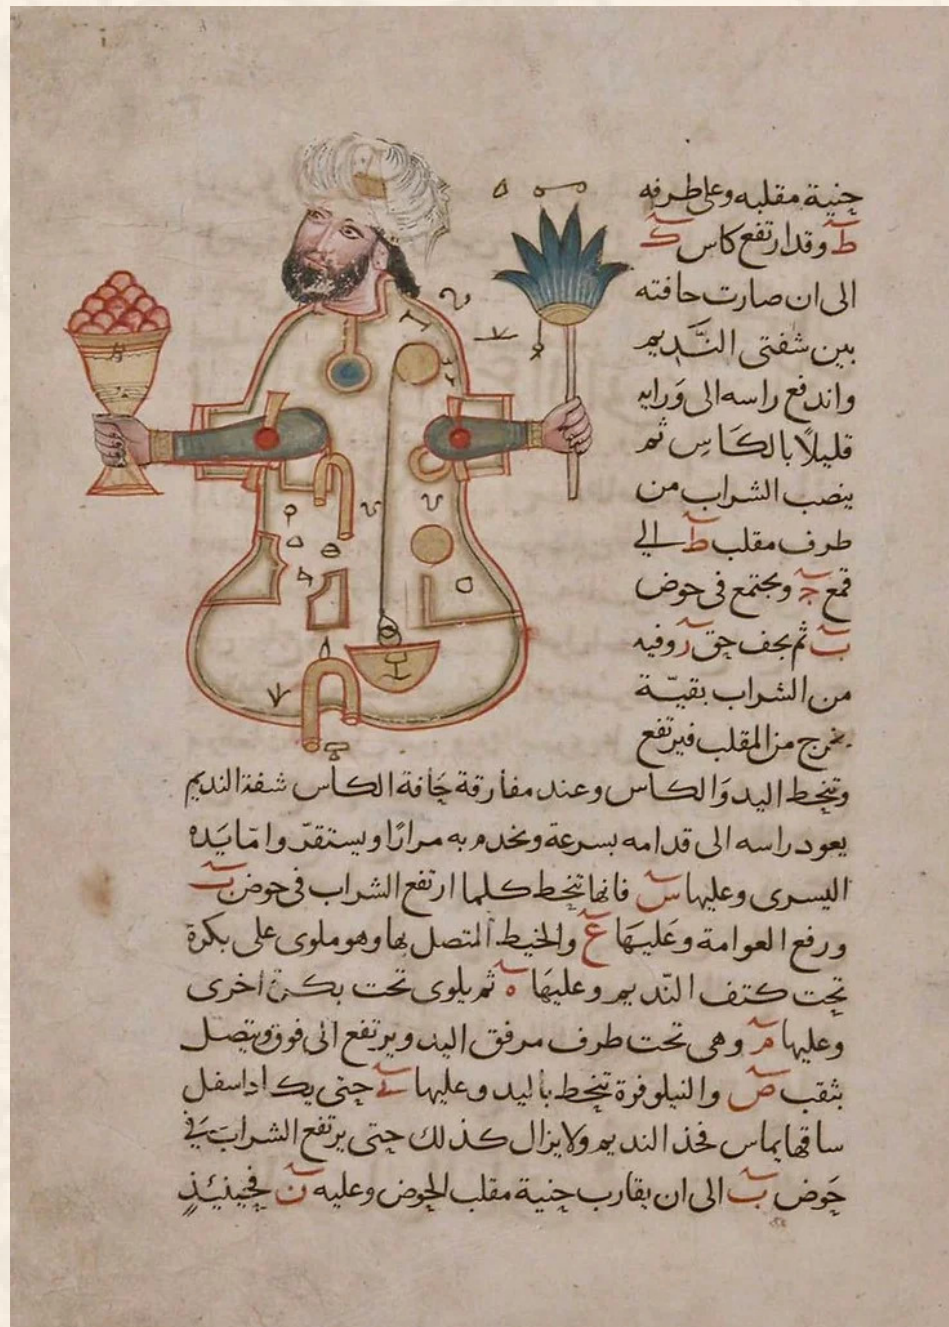 حنية مقلبه وعلى طرفه
ط وقد ارتفع كاس ك
الى ان صارت حافته
بين شفتى النديم
واندفع راسه الى ورايه
قليلًا بالكاس ثم
ينصب الشراب من
طرف مقلب ط الي
قمع ج ويجتمع في حوض
ب ثم يجف حق ز وفيه
من الشراب بقيّة
يخرج من المقلب فيرتفع
وتنحط اليد والكاس وعند مفارقة حافة الكاس شفة النديم
يعود راسه الى قدامه بسرعة ويخدم به مرارًا ويستقرّ وامّا يده
اليسرى وعليها س فانها تنحط كلما ارتفع الشراب في حوض ب
ورفع العوامة وعليها ع والخيط المتصل بها وهو ملوى على بكرة
تحت كتف النديم وعليها ه ثم يلوى تحت بكرة اخرى
وعليها م وهى تحت طرف مرفق اليد ويرتفع الى فوق ويتصل
بثقب ص والنيلوفرة تنحط باليد وعليها حتى يكاد اسفل
ساقها يماس فخذ النديم ولا يزال كذلك حتى يرتفع الشراب في
حوض ب الى ان يقارب حنية مقلب الحوض وعليه ن فحينئذٍ